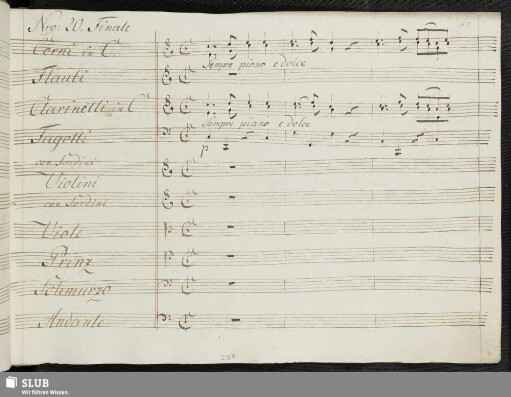 Nro: 20. Finale
Corni in C.
Sempre piano e dolce
Flauti
Clarinetti in C
Sempre piano e dolce
Fagotti
p
con Sordini
Violini
con Sordini
Viole
Prinz
Schmurzo
Andante
SLUB
Wir führen Wissen.